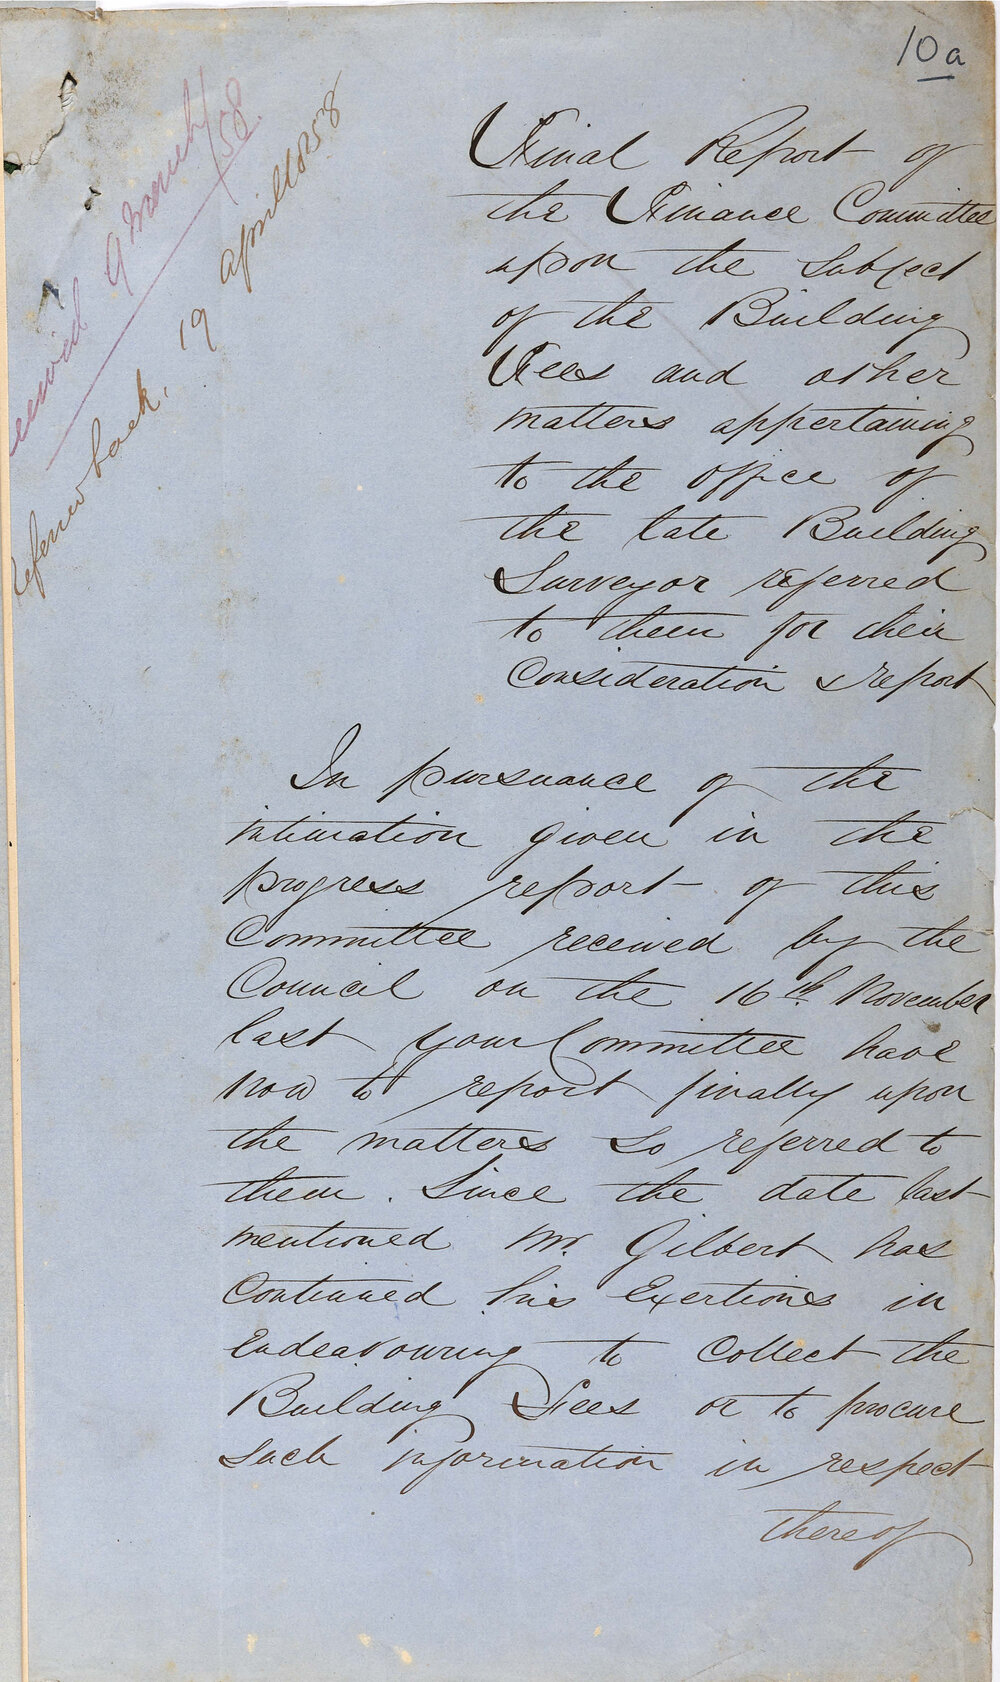 10a
Received 9 March/58
Referred back. 19 April 1858
Final Report of
the Finance Committee
upon the subject
of the Building
Fees and other
matters appertaining
to the office of
the late Building
Surveyor referred
to them for their
Consideration & report
In pursuance of the
intimation given in the
progress report of this
Committee received by the
Council on the 16th November
last your Committee have
now to report finally upon
the matters so referred to
them. Since the date last
mentioned Mr. Gilbert has
Continued his Exertions in
Endeavouring to Collect the
Building Fees or to procure
such information in respect
thereof